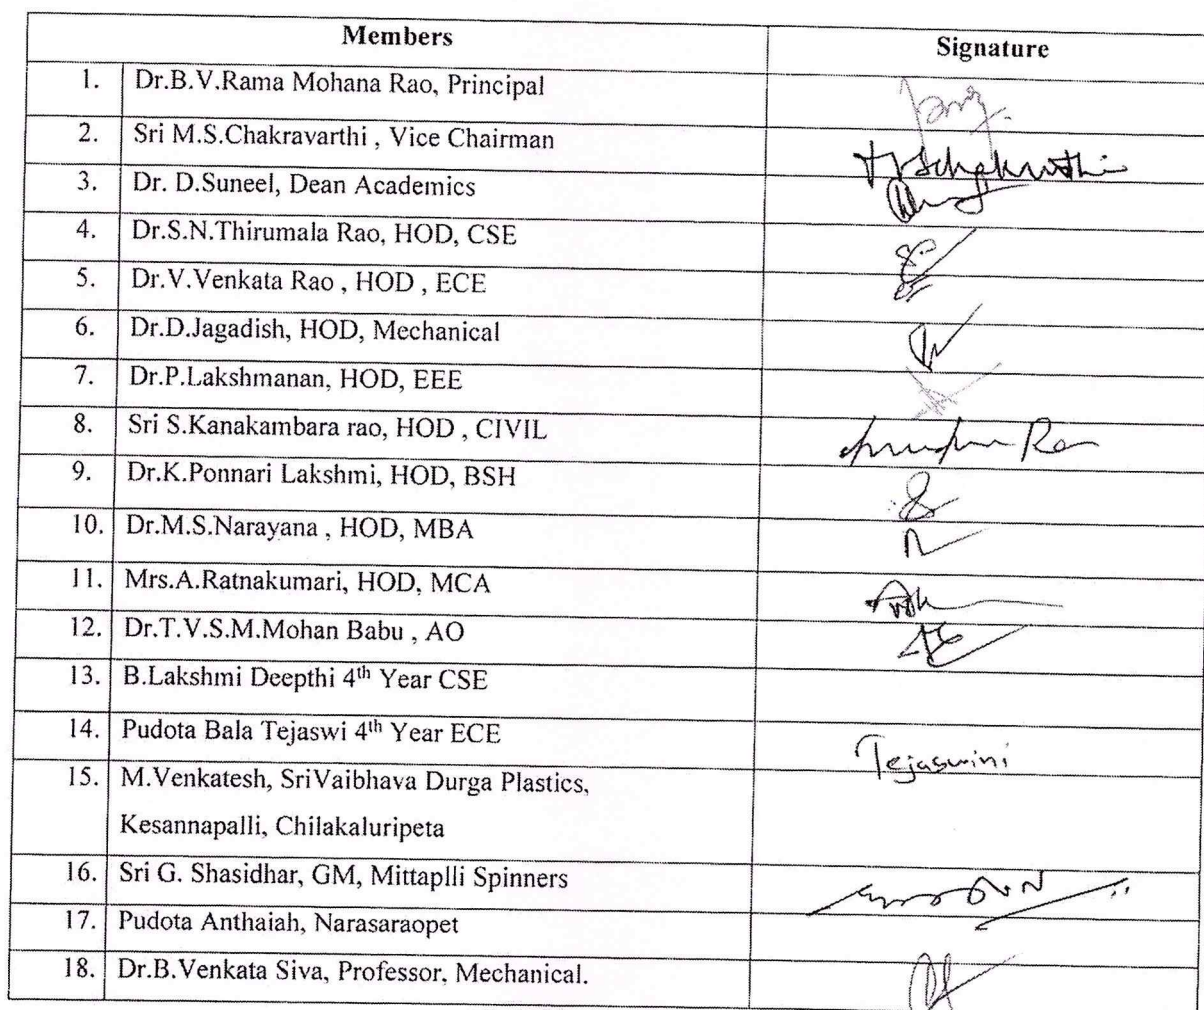 Members Signature
1. Dr.B.V.Rama Mohana Rao, Principal
2. Sri M.S.Chakravarthi , Vice Chairman
3. Dr. D.Suneel, Dean Academics
4. Dr.S.N.Thirumala Rao, HOD, CSE
5. Dr.V.Venkata Rao , HOD , ECE
6. Dr.D.Jagadish, HOD, Mechanical
7. Dr.P.Lakshmanan, HOD, EEE
8. Sri S.Kanakambara rao, HOD , CIVIL
9. Dr.K.Ponnari Lakshmi, HOD, BSH
10. Dr.M.S.Narayana , HOD, MBA
11. Mrs.A.Ratnakumari, HOD, MCA
12. Dr.T.V.S.M.Mohan Babu , AO
13. B.Lakshmi Deepthi 4th Year CSE
14. Pudota Bala Tejaswi 4th Year ECE Tejaswini
15. M.Venkatesh, SriVaibhava Durga Plastics,
Kesannapalli, Chilakaluripeta
16. Sri G. Shasidhar, GM, Mittaplli Spinners
17. Pudota Anthaiah, Narasaraopet
18. Dr.B.Venkata Siva, Professor, Mechanical.